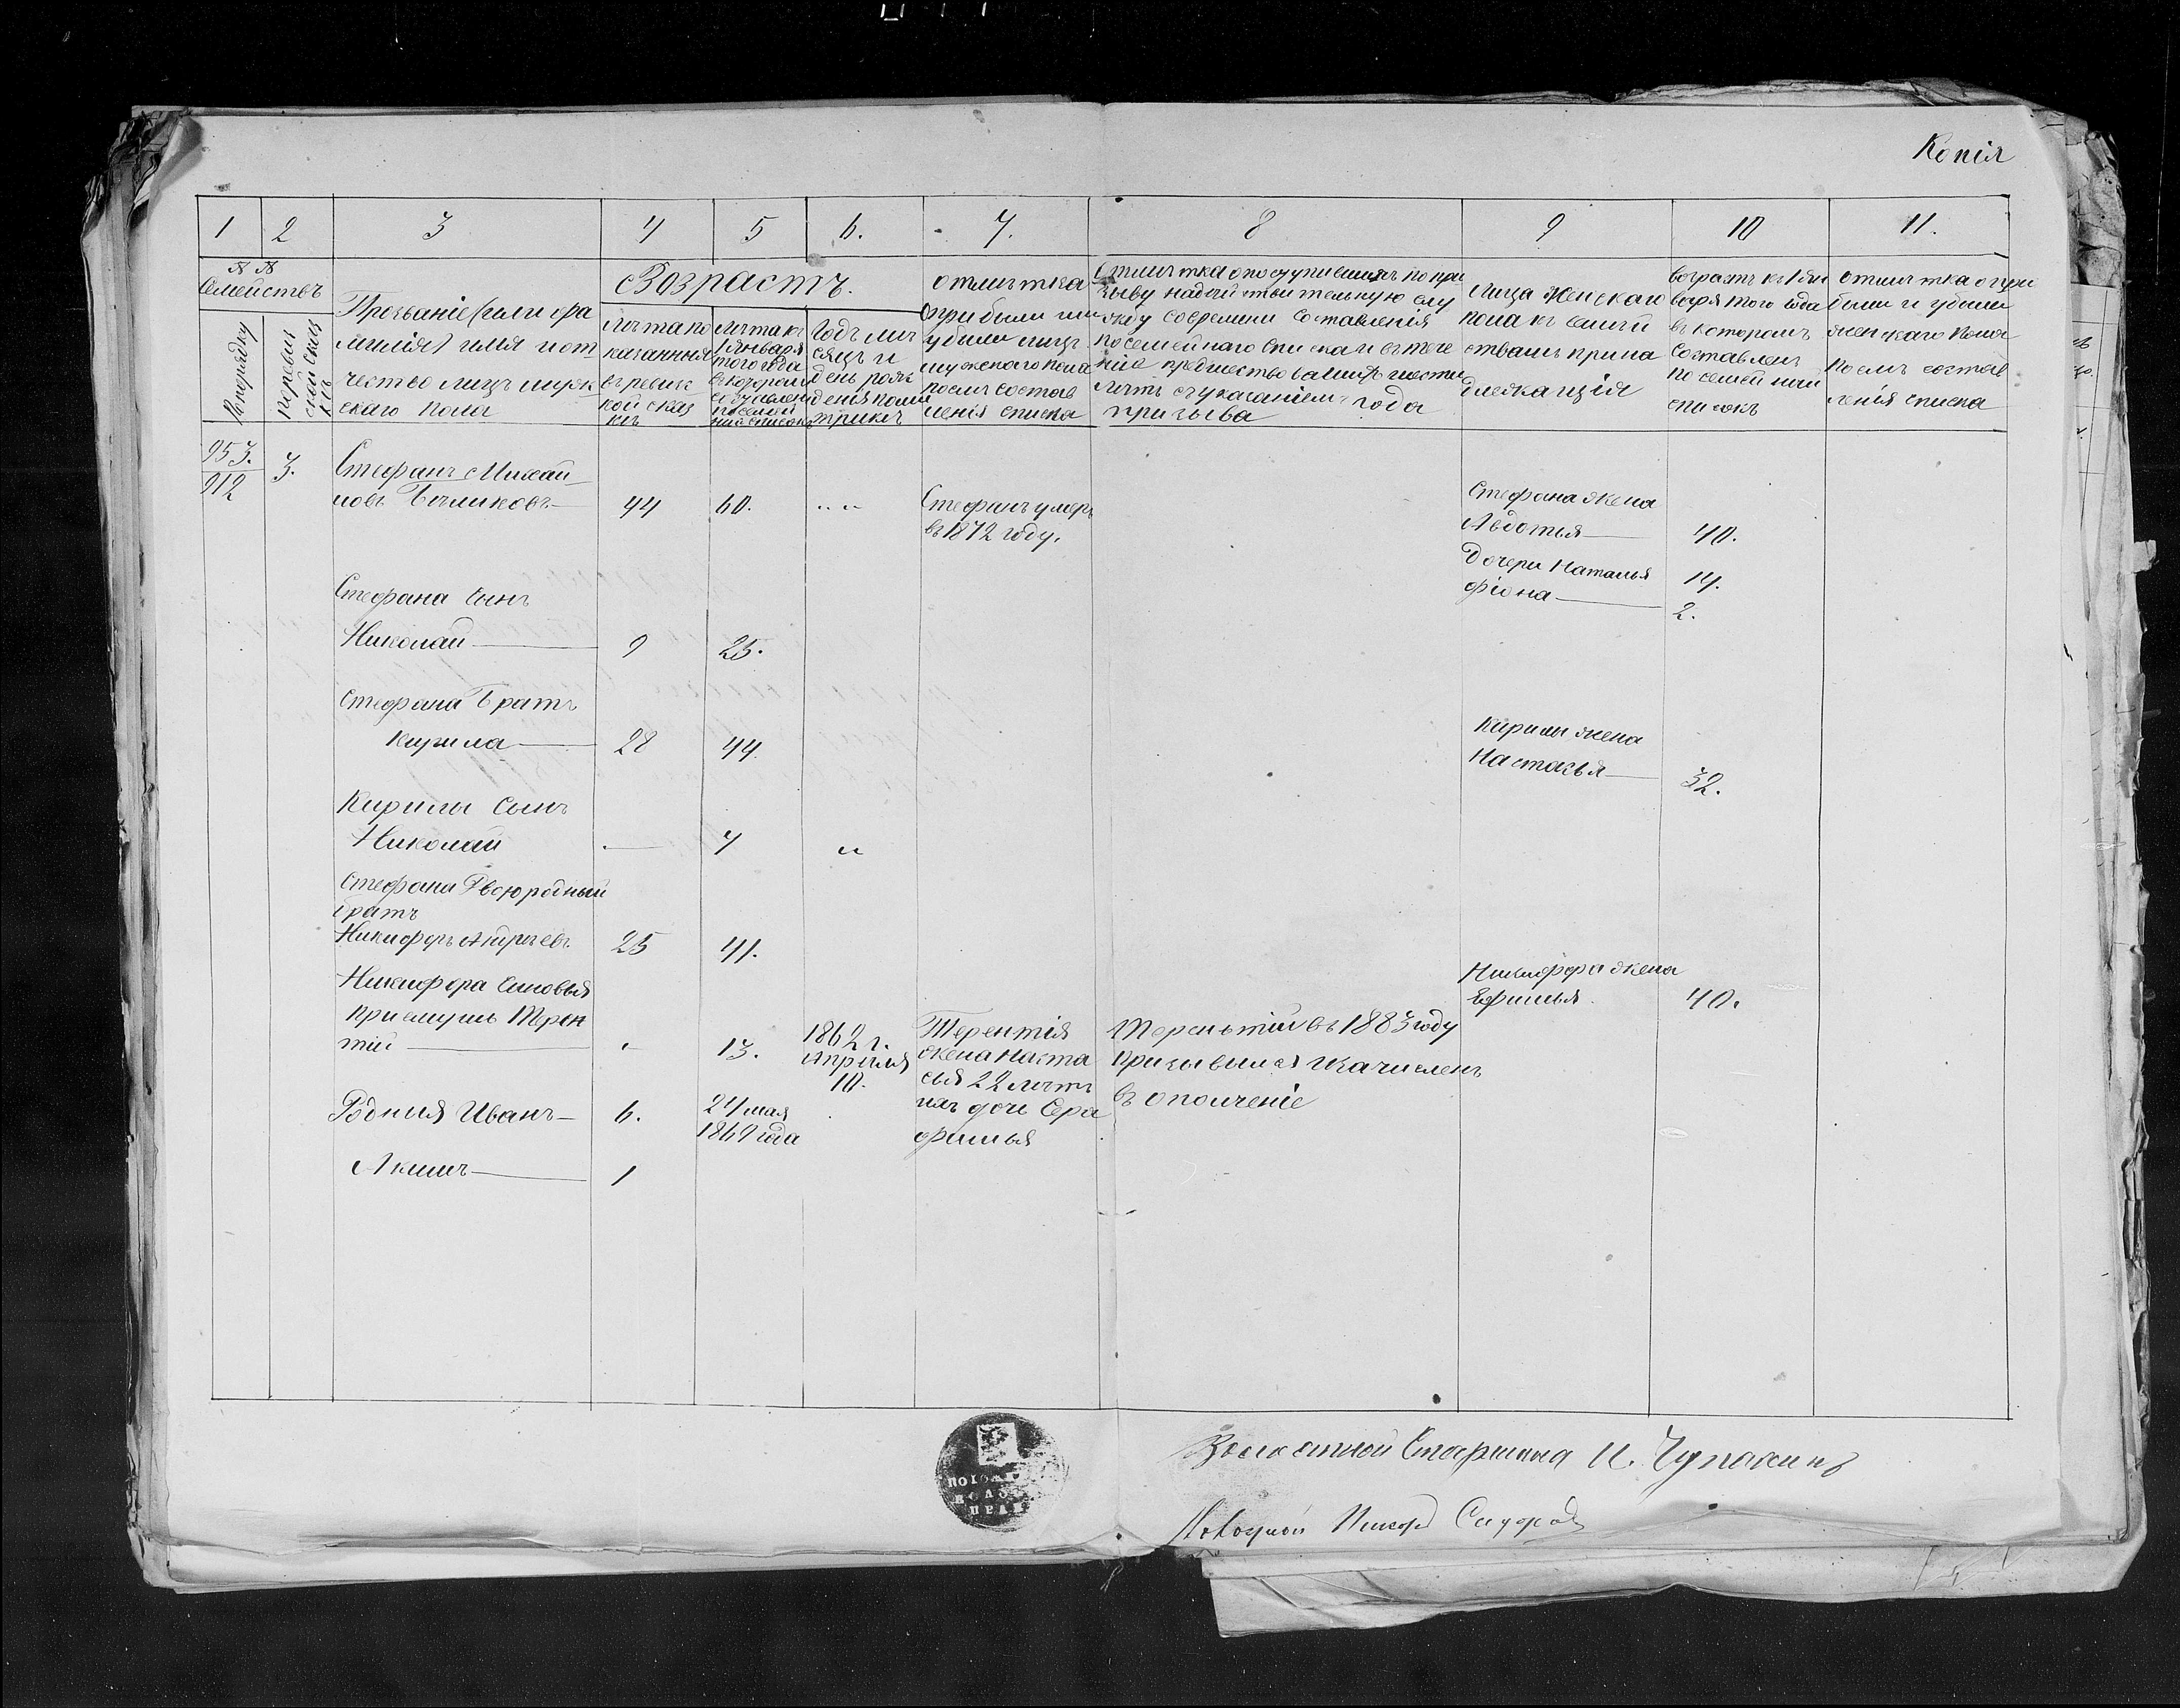 Копія
1 2 3 4 5 6. 7. 8 9 10 11.
№ №
Семействъ
По порядку
По ревизской сказкѣ
Прозваніе (или фа
милія) имя и от
чество лицъ мужс
скаго пола
Возрастъ.
Лѣта по
казанныя
въ ревизс
кой сказ
кѣ
Лѣта къ
1 января
того года
въ которомъ
составленъ
посемей
ный списокъ
Годъ мѣ
сяцъ и
день рож
денія по ме
трикѣ
отмѣтка
о прибыли или
убыли лицъ
мужскаго пола
послѣ состав
ленія списка
Отмѣтка о поступившихъ по при
зыву на дѣйствительную слу
жбу со времени составленія
посемейнаго списка и въ тече
ніе предшествовавшихъ шести
лѣтъ съ указаніемъ года
призыва
Лица женскаго
пола къ семей
ствамъ прина
длежащія
Возрастъ къ 1 Ян
варя того года
въ которомъ
составленъ
посемейный
списокъ
отмѣтка о при
были и убыли
женскаго пола
послѣ состав
ленія списка
953.
912
3.
Стефанъ Михай
ловъ Бѣликовъ 44 60. " "
Стефанъ умеръ
въ 1872 году.
Стефана жена
Авдотья 40.
Дочери Наталья 14.
Фіона 2.
Стефана сынъ
Николай 9 25.
Стефана Братъ
Кирила 28 44.
Кирилы жена
Настасья 32.
Кирилы Сынъ
Николай — 4 "
Стефана Двоюродный
братъ
Никифоръ Андреевъ 25 41.
Никифора жена
Ефимья. 40.
Никифора сыновья
Пріемышъ Терен
тій " 13.
1862 г.
Апрѣля
10.
Терентія
жена Наста
сья 22 лѣтъ
ихъ дочь Сера
фимья
Терентій въ 1883 году
призывался и зачисленъ
въ ополченіе
Родныя Иванъ 6. 24 мая
1869 года
Акимъ 1
ВОЛО
ПРАВ
Волостной Старшина И. Чупахинъ
Волостной Писарь